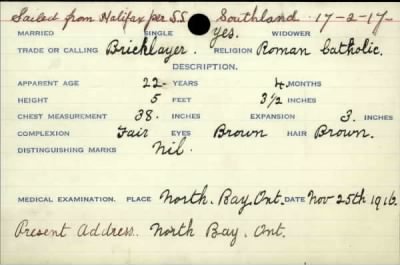 Sailed from Halifax per S.S. Southland 17-2-17-
MARRIED SINGLE Yes. WIDOWER
TRADE OR CALLING Bricklayer. RELIGION Roman Catholic.
DESCRIPTION.
APPARENT AGE 22- YEARS 4. MONTHS
HEIGHT 5 FEET 3½ INCHES
CHEST MEASUREMENT 38. INCHES EXPANSION 3. INCHES
COMPLEXION Fair EYES Brown HAIR Brown.
DISTINGUISHING MARKS Nil.
MEDICAL EXAMINATION. PLACE North. Bay. Ont. DATE Nov 25th 1916.
Present Address. North Bay. Ont.